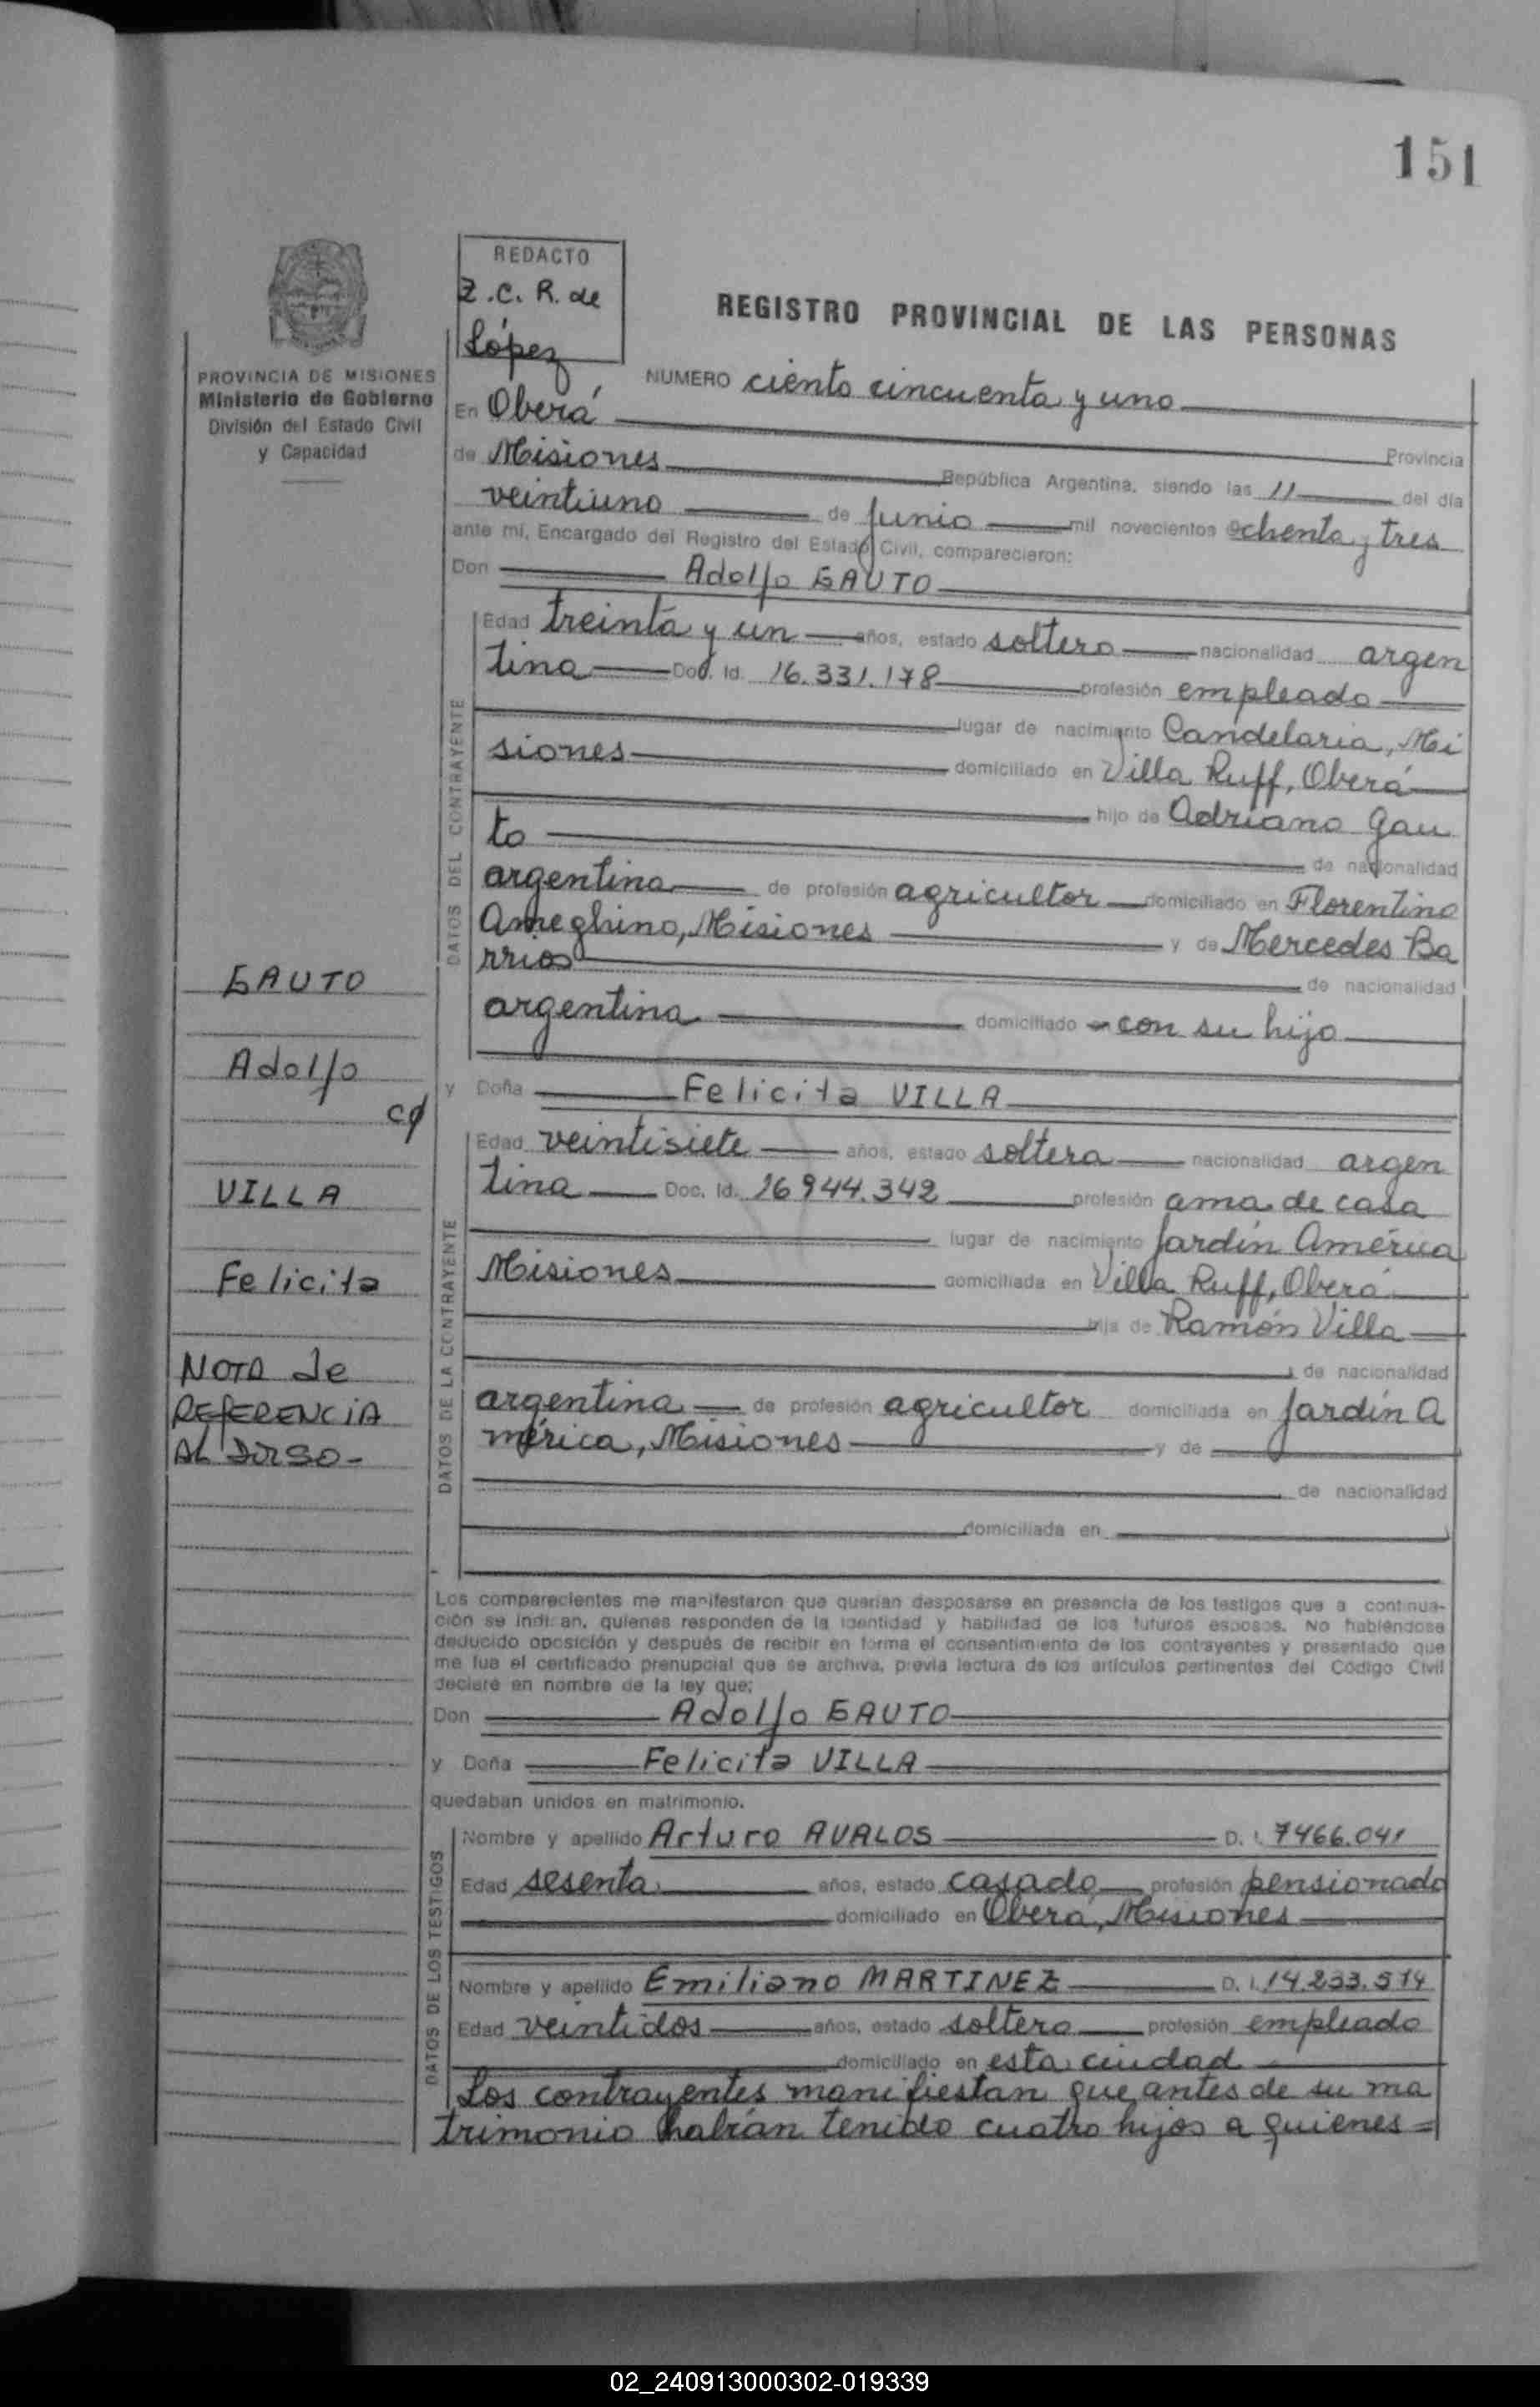 151
REDACTO
Z.C. R. de
López
REGISTRO PROVINCIAL DE LAS PERSONAS
PROVINCIA DE MISIONES
Ministerio de Gobierno
División del Estado Civil
y Capacidad
NUMERO ciento cincuenta y uno
En Oberá
Provincia
de Misiones República Argentina, siendo las 11 del día
veintiuno de Junio mil novecientos ochenta y tres
ante mi, Encargado del Registro del Estado Civil, comparecieron:
Don Adolfo GAUTO
DATOS DEL CONTRAYENTE
Edad treinta y un años, estado soltero nacionalidad argen
tina Doc. Id. 16.331.178 profesión empleado
lugar de nacimiento Candelaria, Mi
siones domiciliado en Villa Ruff, Oberá
hijo de Adriano Gau
to de nacionalidad
argentina de profesión agricultor domiciliado en Florentino
Ameghino, Misiones y de Mercedes Ba
rrios de nacionalidad
argentina domiciliado con su hijo
y Doña Felicita VILLA
DATOS DE LA CONTRAYENTE
Edad veintisiete años, estado soltera nacionalidad argen
tina Doc. Id. 16944.342 profesión ama de casa
lugar de nacimiento Jardín América
Misiones domiciliada en Villa Ruff, Oberá
hija de Ramón Villa
de nacionalidad
argentina de profesión agricultor domiciliada en Jardín A
mérica, Misiones y de
de nacionalidad
domiciliada en
GAUTO
Adolfo
c/
VILLA
Felicita
NOTA de
REFERENCIA
AL DORSO-
Los comparecientes me manifestaron que querían desposarse en presencia de los testigos que a continua-
ción se indican, quienes responden de la identidad y habilidad de los futuros esposos. No habiéndose
deducido oposición y después de recibir en forma el consentimiento de los contrayentes y presentado que
me fue el certificado prenupcial que se archiva, previa lectura de los artículos pertinentes del Código Civil
declaré en nombre de la ley que:
Don Adolfo GAUTO
y Doña Felicita VILLA
quedaban unidos en matrimonio.
DATOS DE LOS TESTIGOS
Nombre y apellido Arturo AVALOS D. I. 7466.041
Edad sesenta años, estado casado profesión pensionado
domiciliado en Oberá, Misiones
Nombre y apellido Emiliano MARTINEZ D. I. 14.233.514
Edad veintidos años, estado soltero profesión empleado
domiciliado en esta ciudad
Los contrayentes manifiestan que antes de su ma
trimonio habían tenido cuatro hijos a quienes=
02_240913000302-019339